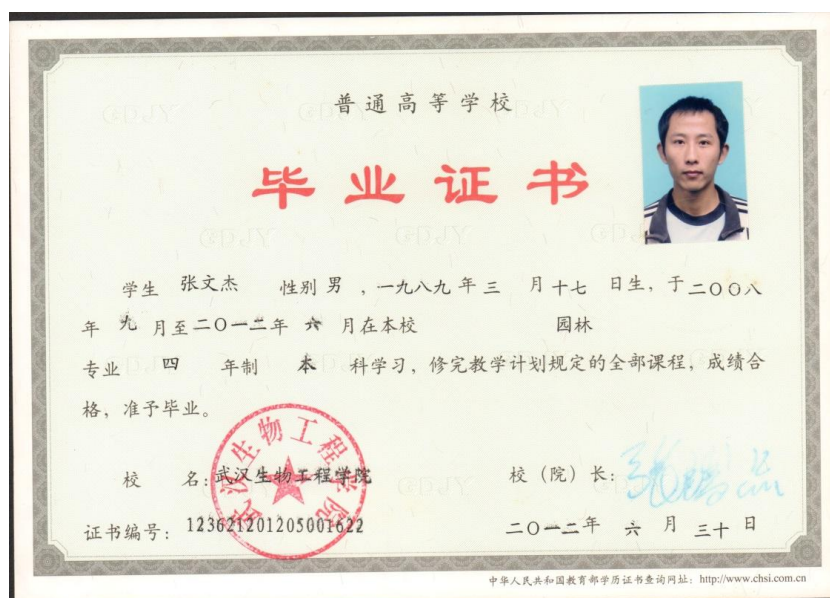 普通高等学校
毕业证书
学生 张文杰 性别 男 ,一九八九 年 三 月 十七 日生, 于 二〇〇八
年 九 月至 二〇一二 年 六 月在本校 园林
专业 四 年制 本 科学习, 修完教学计划规定的全部课程, 成绩合
格, 准予毕业。
武汉生物工程学院
校 名: 武汉生物工程学院 校 (院) 长:
证书编号: 123621201205001622 二〇一二年 六 月 三十 日
中华人民共和国教育部学历证书查询网址: http://www.chsi.com.cn